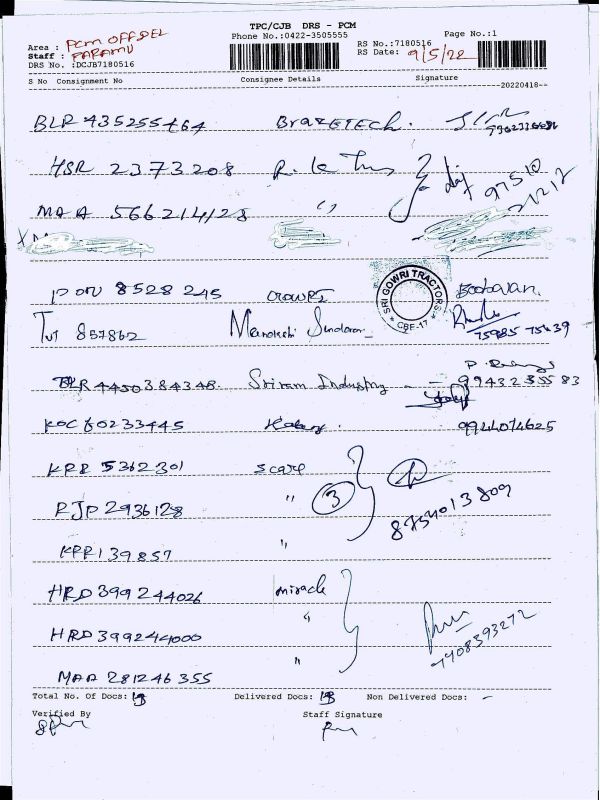 TPC/CJB DRS - PCM
Phone No.:0422-3505555 Page No.:1
Area : PCM OFFSEL
Staff : PARAMU
RS No.:7180516
RS Date: 9/5/22
DRS No. :DCJB7180516
S No Consignment No Consignee Details Signature
--20220418--
BLR 435255464 BrazETECH.
HSR 2373208 97510
MAA 566214128 "
8528 245
SRI GOWRI TRACTORS
* CBE-17 *
TUT 857862 Meenakshi Sundaram 75985 75439
BLR 4450384348 Sriram Industry - 99432 35583
KOC 60233445 9944074625
KRR 5362301 scarp
PJP 2936128 " 3 8754013809
KRR 139857 "
HRD 399244026 miracle
HRD 399244000 " 7908393272
MAA 281246355 "
Total No. Of Docs: 13 Delivered Docs: 13 Non Delivered Docs: -
Verified By Staff Signature